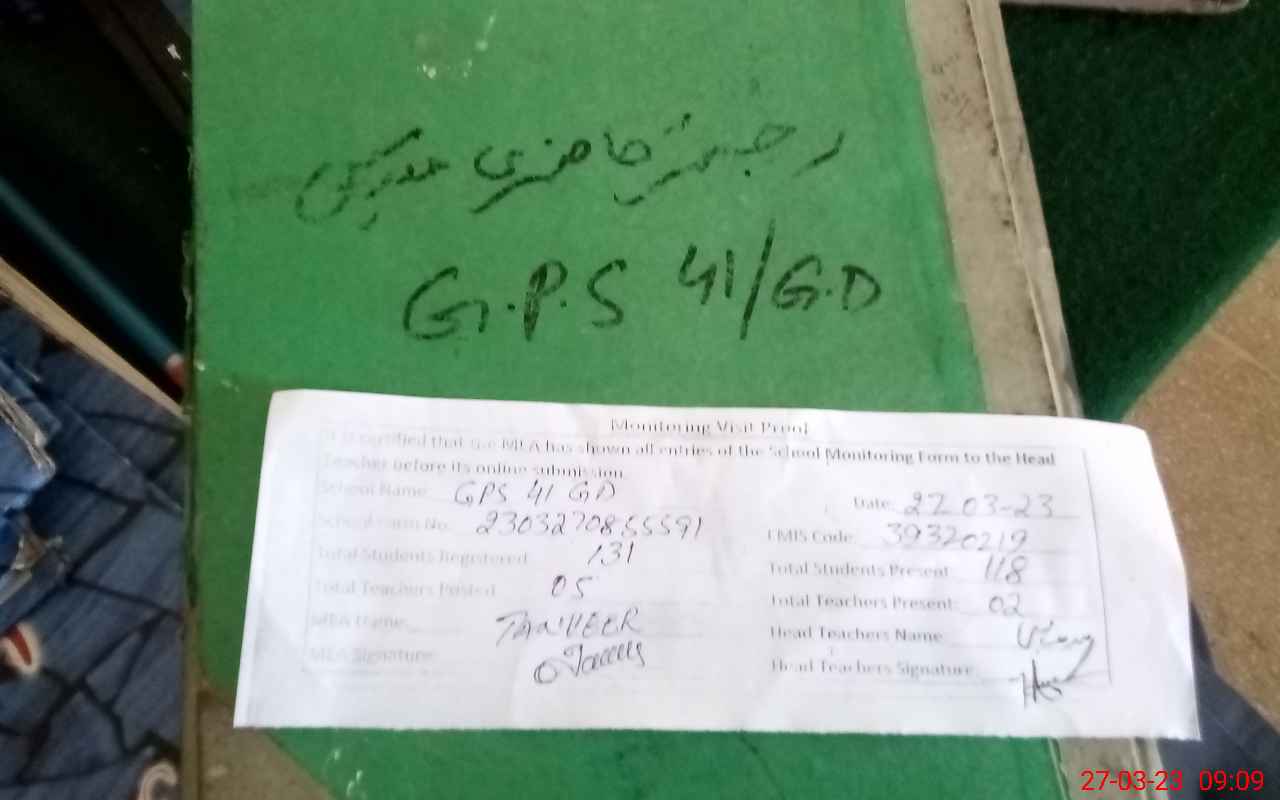 رجسٹر حاضری مدرسین
G.P.S 41/G.D
Monitoring Visit Proof
It is certified that the MEA has shown all entries of the School Monitoring Form to the Head
Teacher before its online submission.
School Name: GPS 41 GD
Date: 27-03-23
School Form No. 2303270855591
EMIS Code: 39320219
Total Students Registered 131
Total Students Present 118
Total Teachers Posted 05
Total Teachers Present: 02
MEA Name:
Head Teachers Name:
MEA Signature:
Head Teachers Signature:
27-03-23 09:09